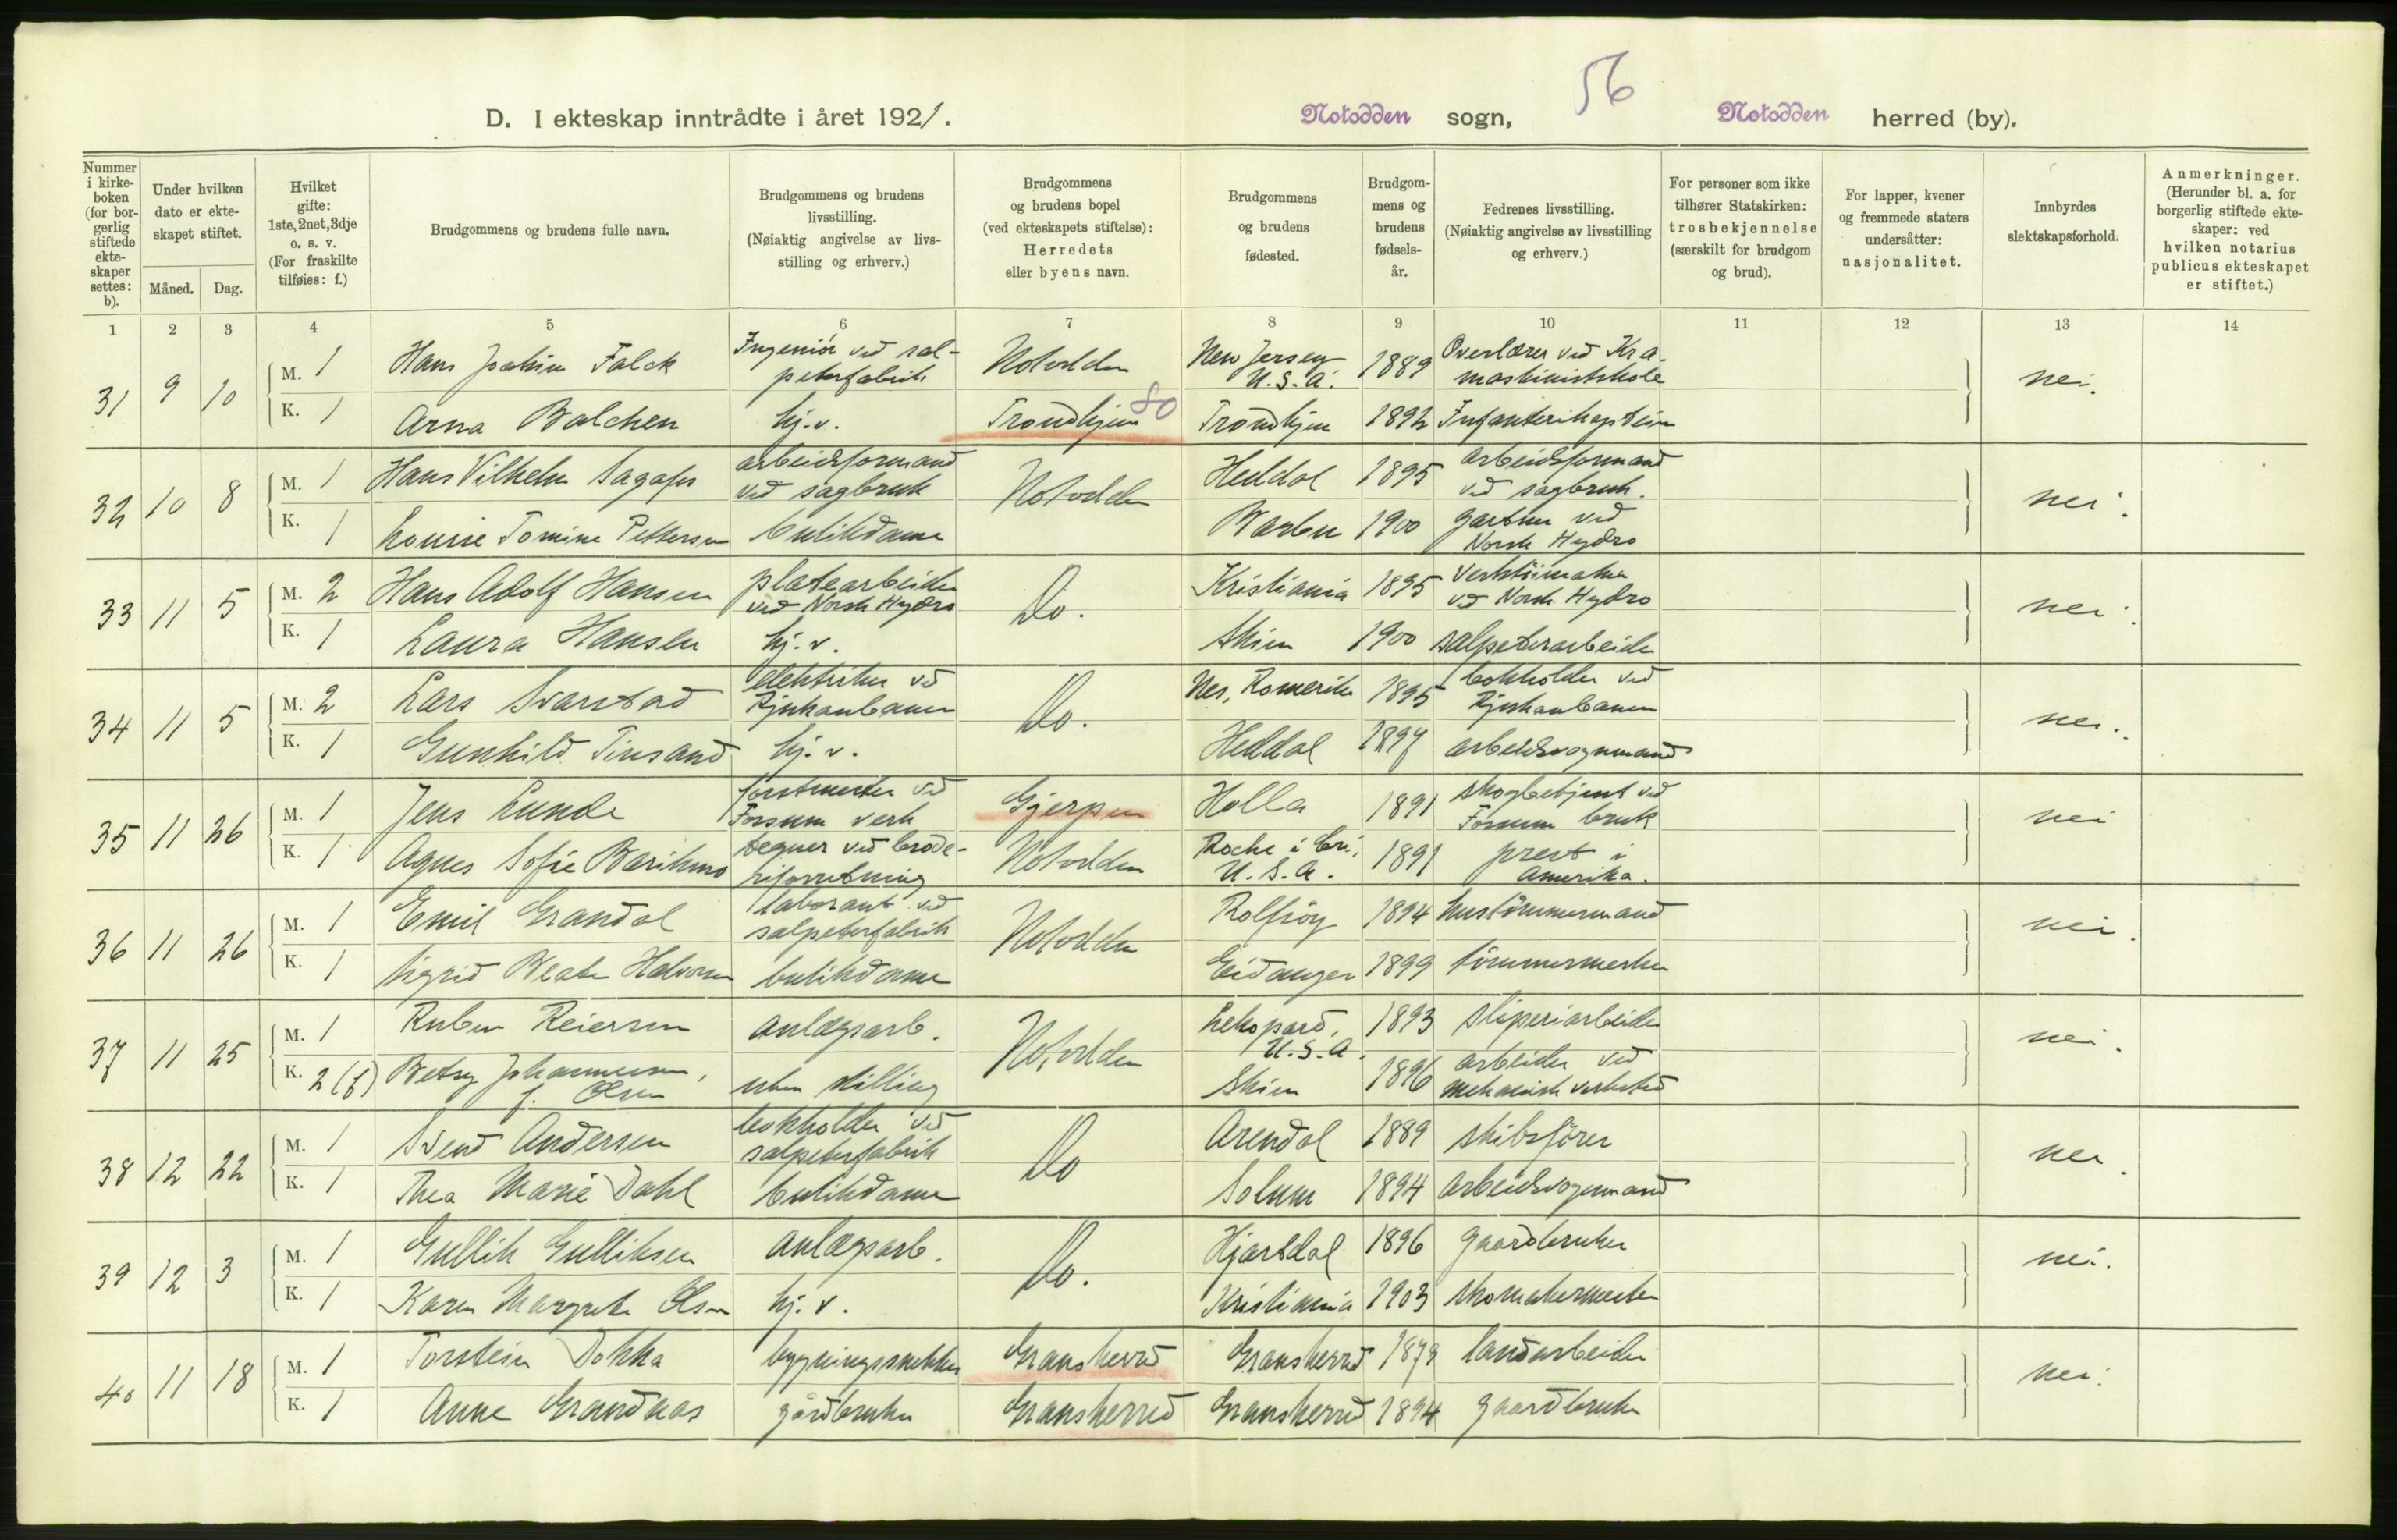 56
D. I ekteskap inntrådte i året 1921.
Notodden sogn, Notodden herred (by).
Nummer i kirke-boken (for bor-gerlig stiftede ekte-skaper settes: b).
Under hvilken dato er ekte-skapet stiftet.
Måned. Dag.
Hvilket gifte: 1ste, 2net, 3dje o. s. v. (For fraskilte tilføies: f.)
Brudgommens og brudens fulle navn.
Brudgommens og brudens livsstilling. (Nøiaktig angivelse av livs-stilling og erhverv.)
Brudgommens og brudens bopel (ved ekteskapets stiftelse): Herredets eller byens navn.
Brudgommens og brudens fødested.
Brudgom-mens og brudens fødsels-år.
Fedrenes livsstilling. (Nøiaktig angivelse av livsstilling og erhverv.)
For personer som ikke tilhører Statskirken: trosbekjennelse (særskilt for brudgom og brud).
For lapper, kvener og fremmede staters undersåtter: nasjonalitet.
Innbyrdes slektskapsforhold.
Anmerkninger. (Herunder bl. a. for borgerlig stiftede ekte-skaper: ved hvilken notarius publicus ekteskapet er stiftet.)
1 2 3 4 5 6 7 8 9 10 11 12 13 14
31 9 10 M. 1 Hans Joakim Falck Ingeniør ved sal-peterfabrik Notodden New Jersey U.S.A. 1889 Overlærer ved Kr.a. maskinistskole nei.
K. 1 Arna Balchen hj.v. Trondhjem 80 Trondhjem 1892 Infanterikaptein
32 10 8 M. 1 Hans Vilhelm Sagafos arbeidsformand ved sagbruk Notodden Heddal 1895 arbeidsformand ved sagbruk. nei.
K. 1 Louise Tomine Pettersen butikdame Barbu 1900 gartner ved Norsk Hydro
33 11 5 M. 2 Hans Adolf Hansen platearbeider ved Norsk Hydro Do. Kristiania 1895 verktøimaker ved Norsk Hydro nei.
K. 1 Laura Hansen hj.v. Skien 1900 salpeterarbeider
34 11 5 M. 2 Lars Svarstad elektriker ved Rjukanbanen Do. Nes, Romerike 1895 bokholder ved Rjukanbanen nei.
K. 1 Gunhild Tinsand hj.v. Heddal 1897 arbeidsvognmand
35 11 26 M. 1 Jens Lunde forstmester ved Fossum verk Gjerpen Holla 1891 skogbetjent ved Fossum bruk nei
K. 1 Agnes Sofie tegner ved brode-riforretning Notodden Roche i U.S.A. 1891 prest i Amerika.
36 11 26 M. 1 Emil Grandal laborant ved salpeterfabrik Notodden Rolfsøy 1894 hustømmermand nei.
K. 1 Sigrid Beate Halvorsen butikdame Eidanger 1899 tømmermerker
37 11 25 M. 1 Ruben Reiersen anlægsarb. Notodden U.S.A. 1893 sliperiarbeider nei.
K. 2 (f) Betsy Johannessen, f. Olsen uten stilling Skien 1896 arbeider ved mekanisk verksted
38 12 22 M. 1 Svend Andersen bokholder ved salpeterfabrik Do Arendal 1889 skibsfører nei.
K. 1 Thea Marie Dahl butikdame Solum 1894 arbeidsvognmand
39 12 3 M. 1 Gullik Gulliksen anlægsarb. Do. Hjartdal 1896 gaardbruker nei.
K. 1 Karen Margrete Olsen hj.v. Kristiania 1903 skomakermester
40 11 18 M. 1 Torstein Dokka bygningssnekker Gransherred Gransherred 1879 landarbeider nei.
K. 1 Anne Grandaas gårdbruker Gransherred Gransherred 1894 gaardbruker